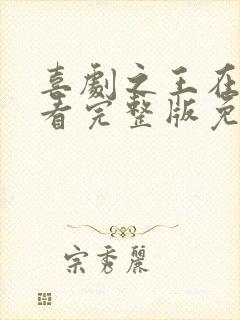 喜劇之王在
看完整版免
宗秀麗